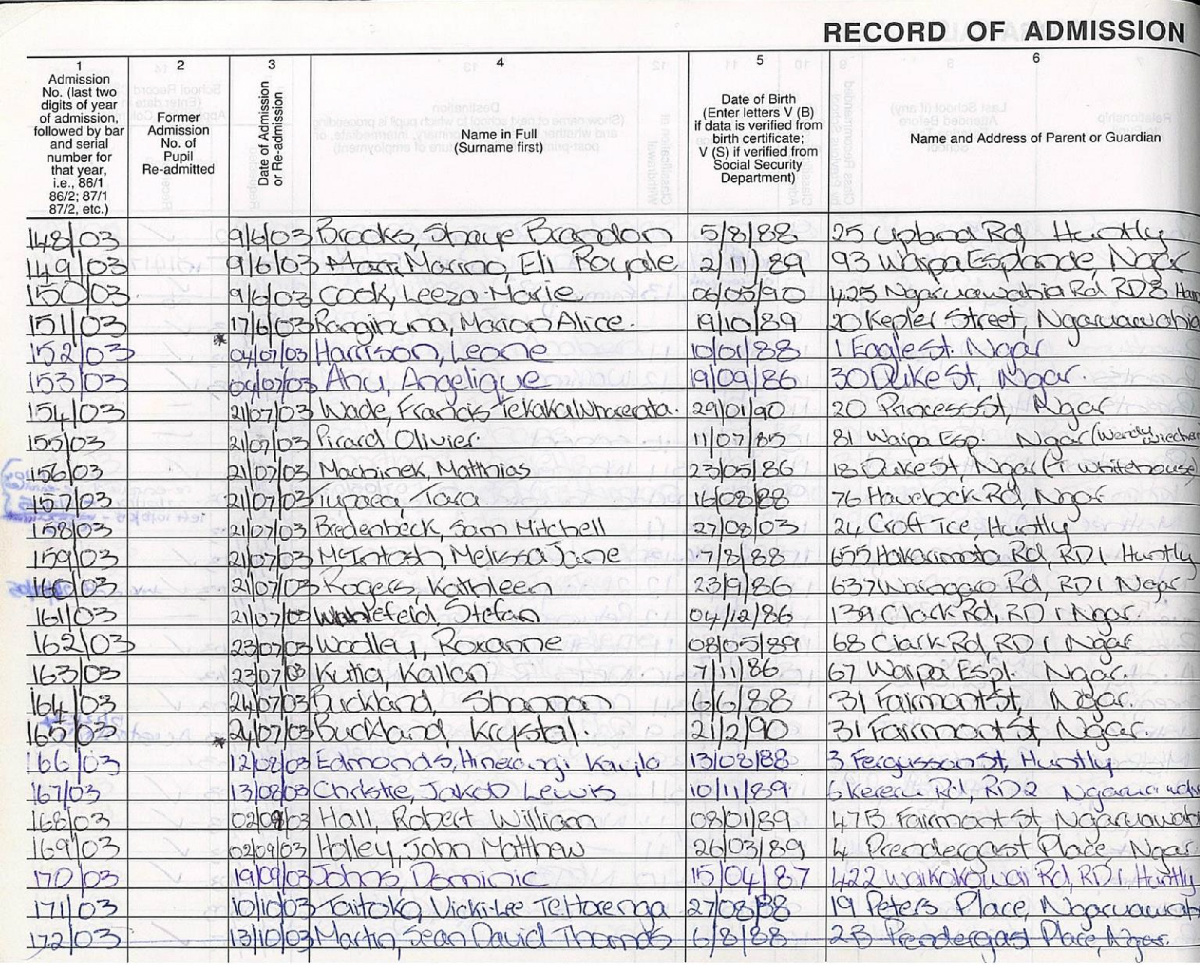 RECORD OF ADMISSION
1 2 3 4 5 6
Admission No. (last two digits of year of admission, followed by bar and serial number for that year, i.e., 86/1 86/2; 87/1 87/2, etc.)
Former Admission No. of Pupil Re-admitted
Date of Admission or Re-admission
Name in Full (Surname first)
Date of Birth (Enter letters V (B) if data is verified from birth certificate; V (S) if verified from Social Security Department)
Name and Address of Parent or Guardian
148/03 9/6/03 Brooks, Shaye Brandon 5/8/88 25 Upland Rd, Huntly
149/03 9/6/03 Marino, Eli Royale 2/11/89 93 Waipa Esplande, Ngar
150/03 9/6/03 Cook, Leeza-Marie 06/05/90 425 Ngaruawahia Rd RD8 Ham
151/03 17/6/03 Rangituna, Marion Alice. 19/10/89 20 Kepler Street, Ngaruawahia
152/03 * 04/07/03 Harrison, Leone 10/01/88 1 Eagle St. Ngar
153/03 04/07/03 Ahu Angelique 19/09/86 30 Duke St, Ngar.
154/03 21/07/03 Wade, Francis 29/01/90 20 Princess St, Ngar
155/03 21/07/03 Pirard Olivier. 11/07/85 81 Waipa Esp. Ngar (Wendy
156/03 21/07/03 Machinek, Matthias 23/05/86 18 Duke St, Ngar ( Whitehouse)
157/03 21/07/03 Tupaea, Tara 16/08/88 76 Havelock Rd, Ngar
158/03 21/07/03 Bredenbeck, Sam Mitchell 27/08/03 24 Croft Tce, Huntly
159/03 21/07/03 McIntosh, Melissa Jane 7/8/88 655 Hakarimata Rd, RD1 Huntly
160/03 21/07/03 Rogers, Kathleen 23/9/86 637 Waingaro Rd, RD1 Ngar
161/03 21/07/03 Stefan 04/12/86 139 Clark Rd, RD1 Ngar.
162/03 23/07/03 Wadley, Roxanne 08/05/89 68 Clark Rd, RD1 Ngar
163/03 23/07/03 Kutia, Kallan 7/11/86 67 Waipa Espl. Ngar.
164/03 24/07/03 Buckland, Shannan 6/6/88 31 Fairmont St, Ngar
165/03 * 24/07/03 Buckland, Krystal. 21/2/90 31 Fairmont St, Ngar.
166/03 12/08/03 Edmonds, Kayla 13/08/88 3 Fergusson St, Huntly
167/03 13/08/03 Christie, Jakob Lewis 10/11/89. 6 Kereru Rd, RD2
168/03 02/09/03 Hall, Robert William 08/01/89 47B Fairmont St, Ngaruawahi
169/03 02/09/03 Holley, John Matthew 26/03/89 4 Prendergast Place, Ngar.
170/03 19/09/03 Johns, Dominic 15/04/87 422 Waikokowai Rd, RD1, Huntly
171/03 10/10/03 Taitoko, Vicki-Lee 27/08/88 19 Peters Place, Ngaruawah
172/03 13/10/03 Martin, Sean David Thomas 6/8/88 2B Prendergast Place, Ngar.